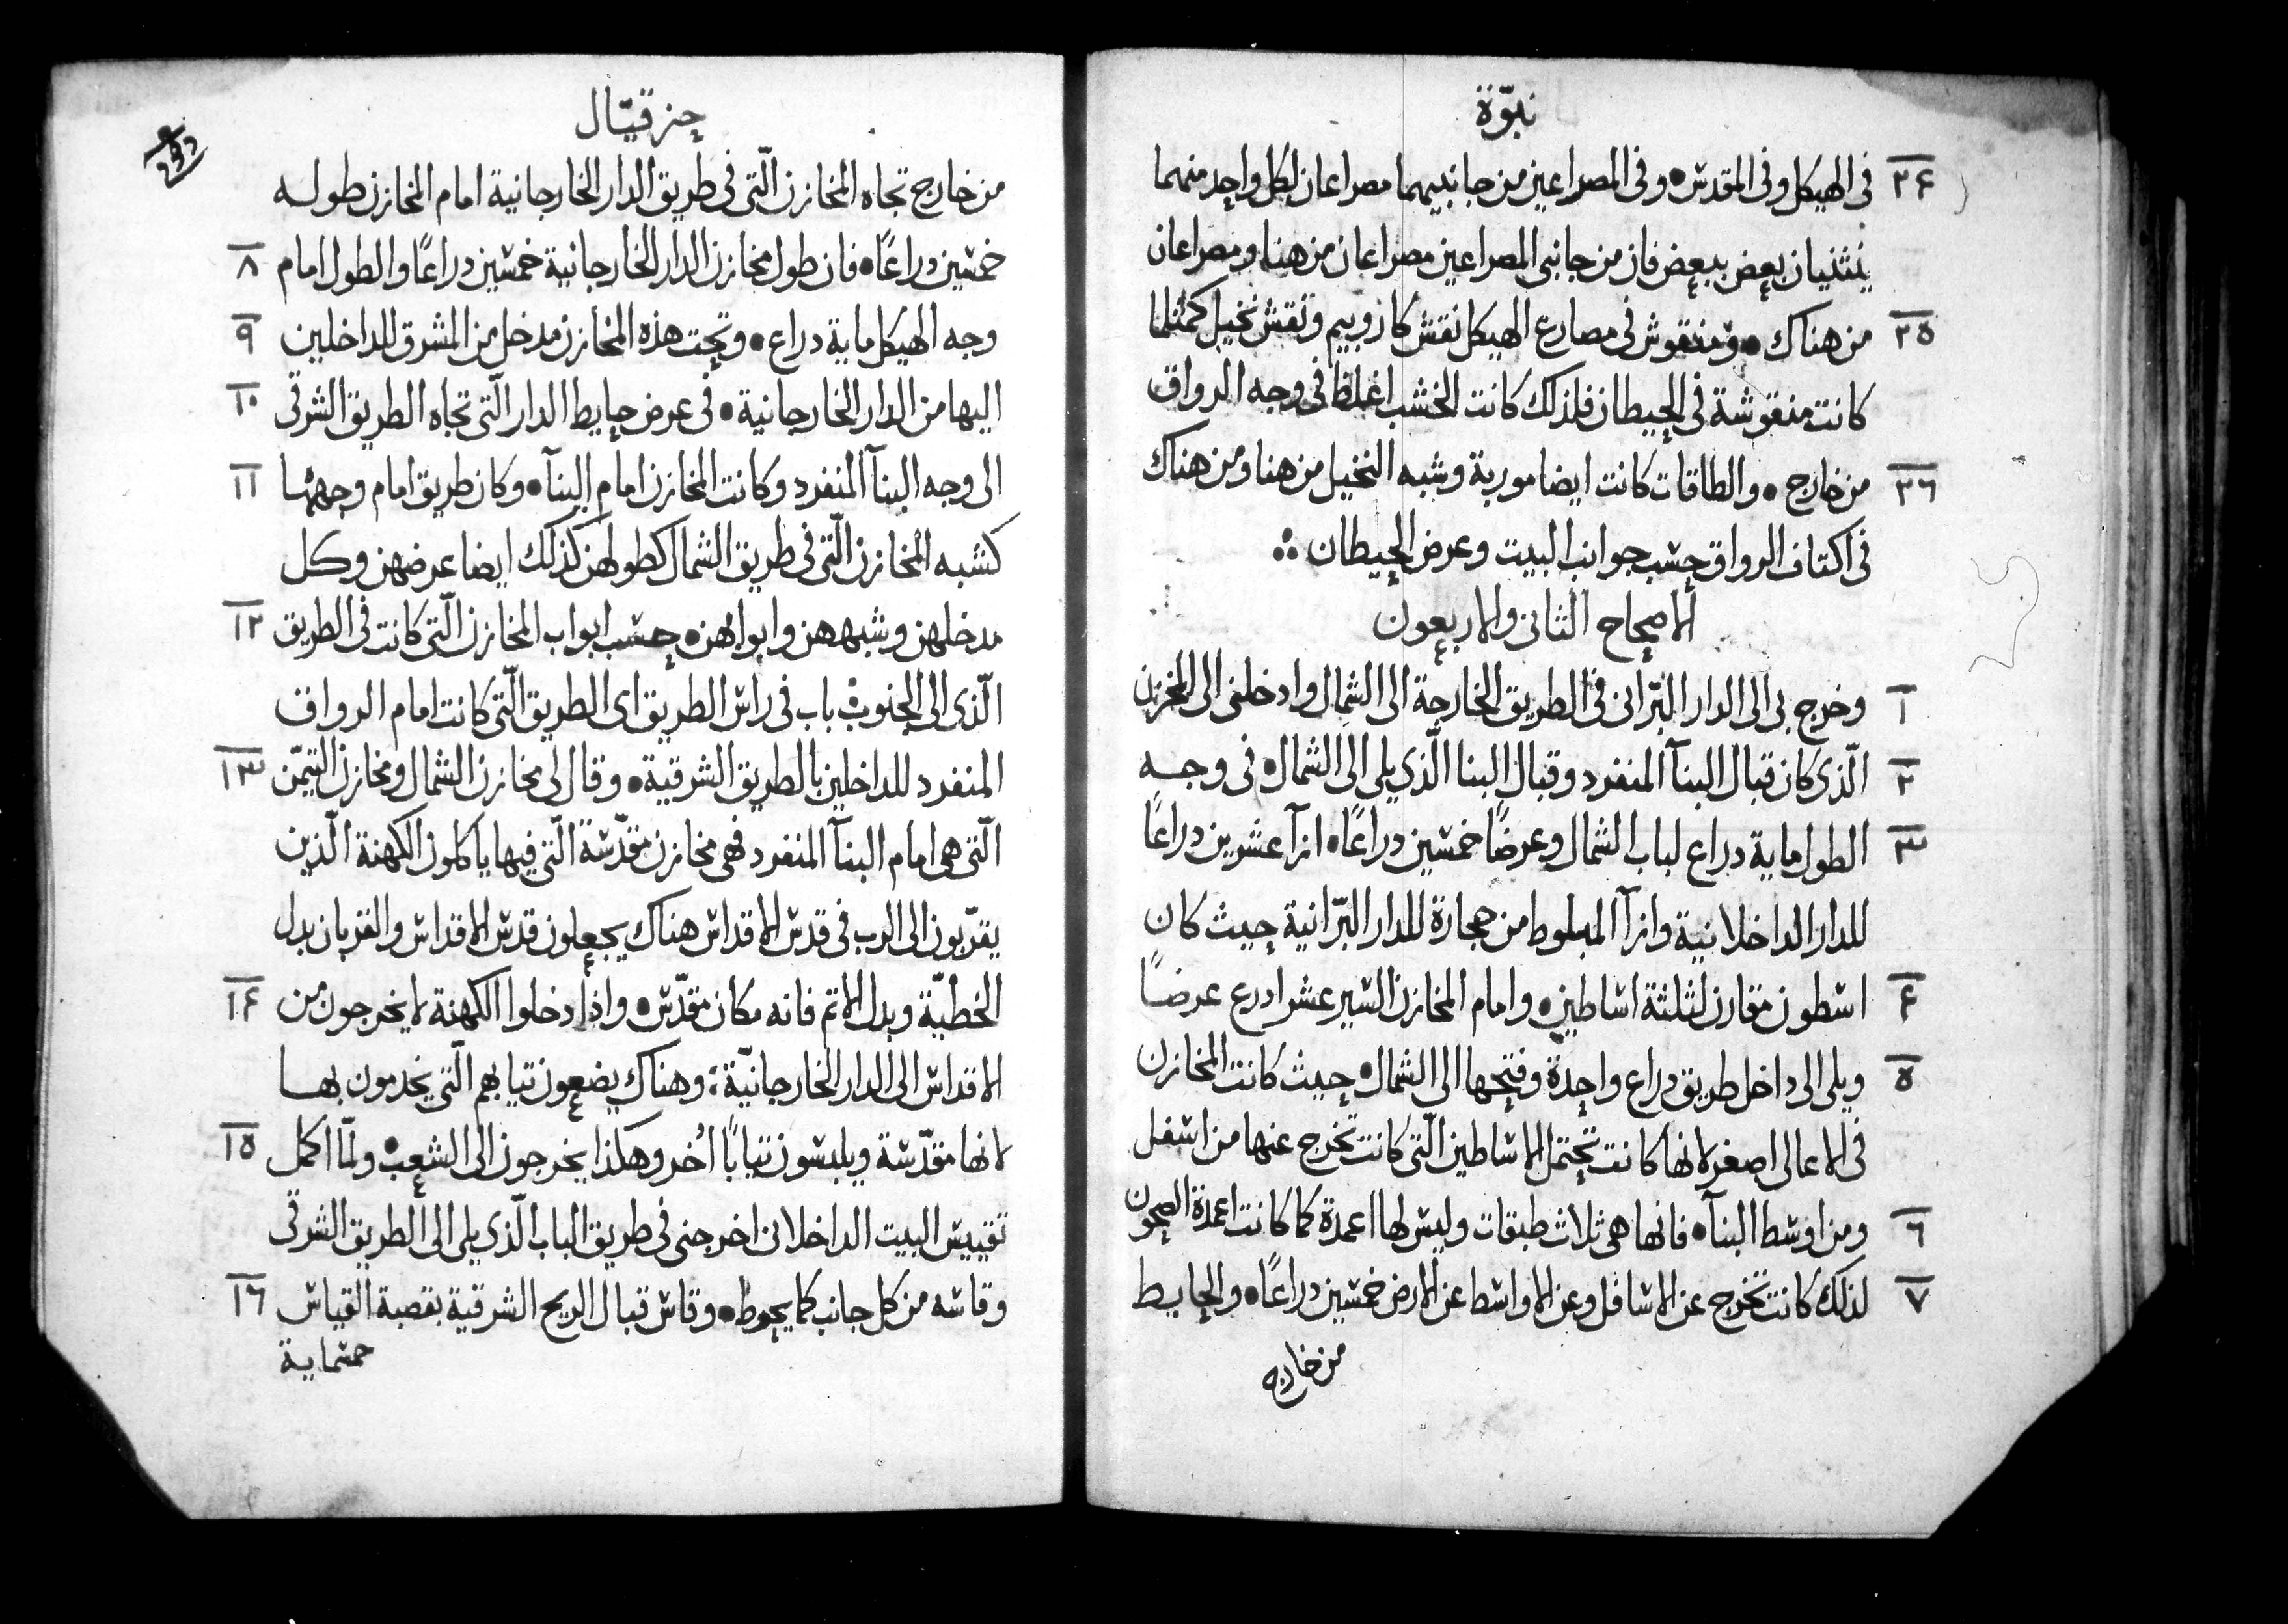 نبوّة
٢٤ فى الهيكل وفى المقدس • وفى المصراعين من جانبيهما مصراعان لكل واحد منهما
ينثنيان بعض ببعض فان من جانبى المصراعين مصراعان من هنا ومصراعان
٢٥ من هناك • ومنقوش فى مصارع الهيكل نقش كاروبيم ونقش نخيل كمثلما
كانت منقوشة فى الحيطان فلذلك كانت الخشب اغلظ فى وجه الرواق
٢٦ من خارج • والطاقات كانت ايضا موربة وشبه النخيل من هنا ومن هناك
فى اكتاف الرواق حسب جوانب البيت وعرض الحيطان
الاصحاح الثانى والاربعون
١ وخرج بى الى الدار البّرانى فى الطريق الخارجة الى الشمال وادخلنى الى المخزن
٢ الّذى كان قبال البنآ المنفرد وقبال البنا الّذى يلى الى الشمال • فى وجه
٣ الطول ماية دراع لباب الشمال وعرضًا خمسين دراعًا • ازآ عشرين دراعًا
للدار الداخلانية وازآ المبلوط من حجارة للدار البّرانية حيث كان
٤ اسطون مقارن لثلثة اساطين • وامام المخازن السير عشر ادرع عرضًا
٥ ويلى الى داخل طريق دراع واحدة وفتحها الى الشمال • حيث كانت المخازن
فى الاعالى اصغر لانها كانت تحتمل الاساطين الّتى كانت تخرج عنها من اسفل
٦ ومن اوسط البنآ • فانها هى ثلاث طبقات وليس لها اعمدة كما كانت اعمدة الصحون
٧ لذلك كانت تخرج عن الاسافل وعن الاواسط عن الارض خمسين دراعًا • والحايط
من خارج
حزقيّال
من خارج تجاه المخازن الّتى فى طريق الدار الخارجانية امام المخازن طوله
٨ خمسين دراعًا • فان طول مخازن الدار الخارجانية خمسين دراعًا والطول امام
٩ وجه الهيكل ماية دراع • وتحت هذه المخازن مدخل من المشرق للداخلين
١٠ اليها من الدار الخارجانية • فى عرض حايط الدار الّتى تجاه الطريق الشرقى
١١ الى وجه البنآ المنفرد وكانت المخازن امام البنآ • وكان طريق امام وجهها
كشبه المخازن الّتى فى طريق الشمال كطولهن كذلك ايضا عرضهن وكل
١٢ مدخلهن وشبههن وابوابهن • حسب ابواب المخازن الّتى كانت فى الطريق
الّذى الى الجنوب باب فى راس الطريق اى الطريق الّتى كانت امام الرواق
١٣ المنفرد للداخلين بالطريق الشرقية • وقال لى مخازن الشمال ومخازن التيمّن
الّتى هى امام البنآ المنفرد فهى مخازن مقدّسة الّتى فيها ياكلون الكهنة الّذين
يقرّبون الى الرب فى قدس الاقداس هناك يجعلون قدس الاقداس والقربان بدل
١٤ الخطيّة وبدل الاتم فانه مكان مقدّس • واذا دخلوا الكهنة لا يخرجون من
الاقداس الى الدار الخارجانيّة : وهناك يضعون تيابهم الّتى يخدمون بها
١٥ لانها مقدّسة ويلبسون تيابًا اُخر وهكذا يخرجون الى الشعب • ولمّا اكمل
تقييس البيت الداخلانى اخرجنى فى طريق الباب الّذى يلى الى الطريق الشرقى
١٦ وقاسه من كل جانب كما يحوط • وقاس قبال الريح الشرقية بقصبة القياس
خمسماية